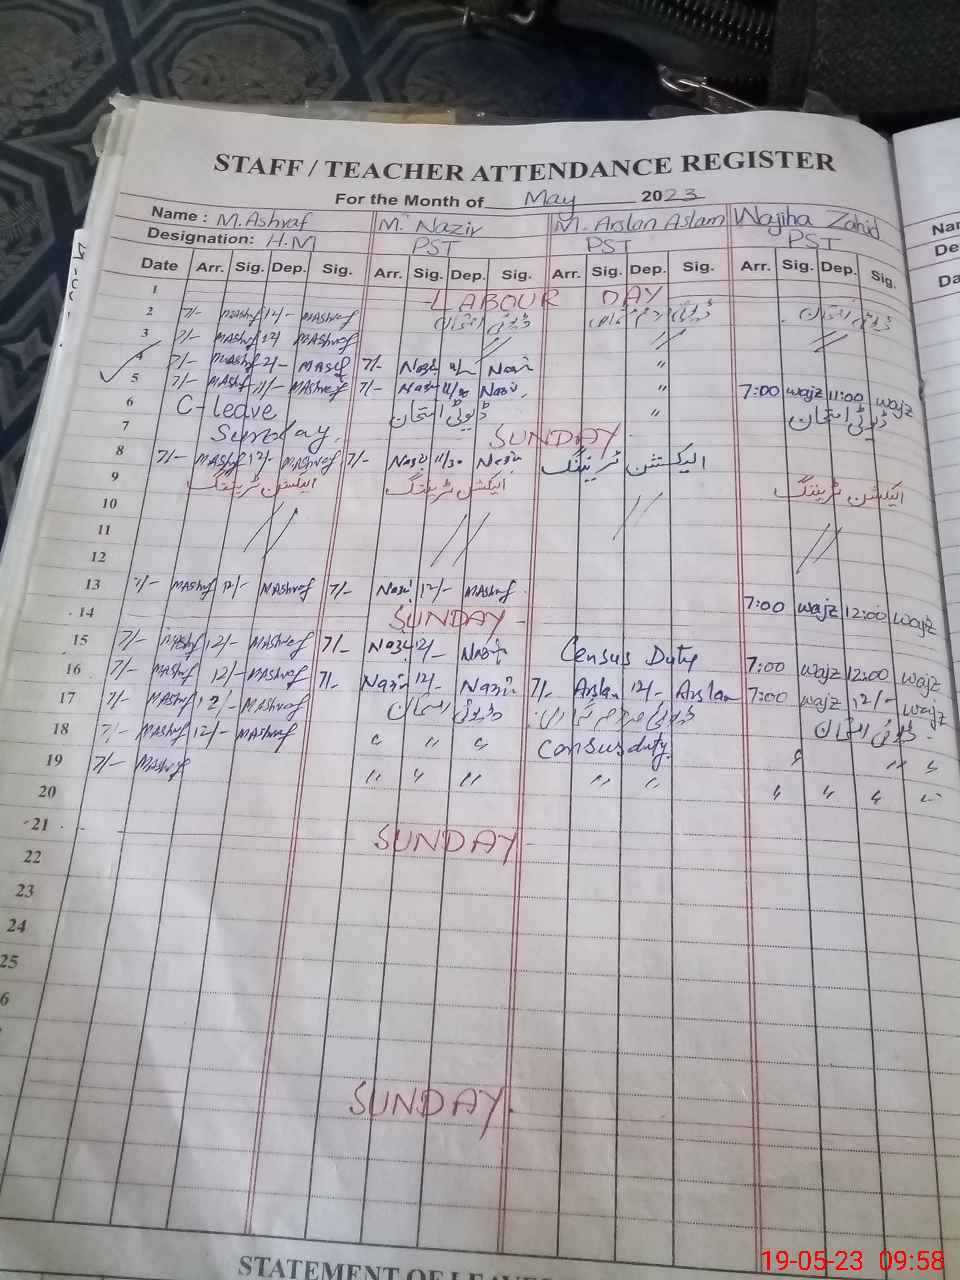 STAFF / TEACHER ATTENDANCE REGISTER
For the Month of May 2023
Name : M.Ashraf M. Nazir M. Arslan Aslam Wajiha Zahid
Designation: H.M PST PST PST
Date Arr. Sig. Dep. Sig. Arr. Sig. Dep. Sig. Arr. Sig. Dep. Sig. Arr. Sig. Dep. Sig.
1 LABOUR DAY
2 7/- MAshraf 12/- MAshraf ڈیوٹی امتحان ڈیوٹی امتحان
3 7/- MAshraf 12/ MAshraf //  // //
4 7/- MAshraf MAshraf 7/- Nazir Nazir "
5 7/- MAshraf 11/- MAshraf 7/- Nazir 11/30 Nazir " 7:00 wajz 11:00 wajz
6 C-leave ڈیوٹی امتحان " ڈیوٹی امتحان
7 Sunday. SUNDAY.
8 7/- MAshraf 12/- MAshraf 7/- Nazir 11/30 Nazir الیکشن ٹریننگ
9 الیکشن ٹریننگ الیکشن ٹریننگ الیکشن ٹریننگ
10 // // // //
11
12
13 7/- MAshraf 12/- MAshraf 7/- Nazir 12/- MAshraf 7:00 wajz 12:00 wajz
14 SUNDAY -
15 7/- MAshraf 12/- MAshraf 7/- Nazir 12/- Nazir Census Duty 7:00 wajz 12:00 wajz
16 7/- MAshraf 12/- MAshraf 7/- Nazir 12/- Nazir 7/- Arslan 12/- Arslan 7:00 wajz 12/- wajz
17 7/- MAshraf 12/- MAshraf ڈیوٹی امتحان ڈیوٹی مردم شماری ڈیوٹی امتحان
18 7/- MAshraf 12/- MAshraf " " " Census duty. " " "
19 7/- MAshraf " " " " " " " " "
20
21 SUNDAY
22
23
24
25
6
SUNDAY.
19-05-23 09:58